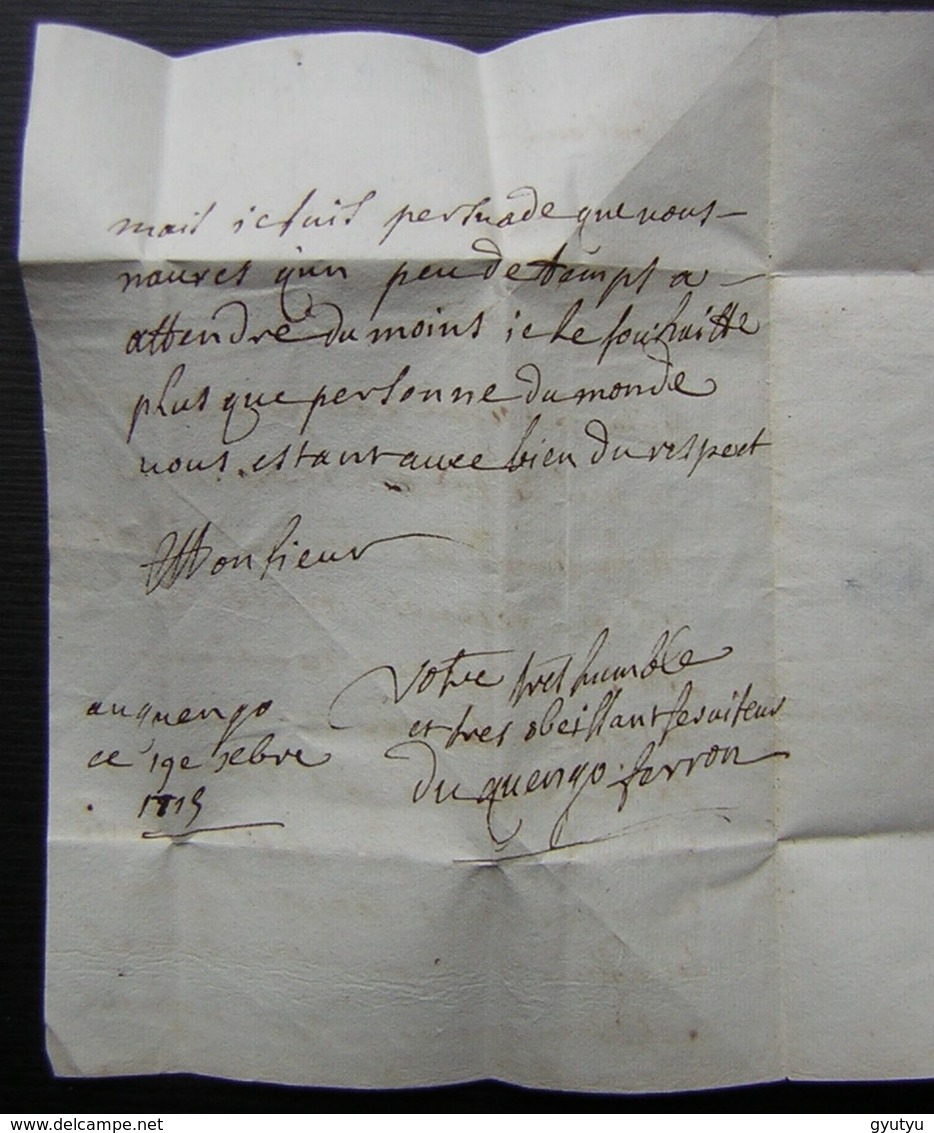 mais ie suis persuade que vous
naures qun peu de temps a
attendre du moins ie le souhaitte
plus que personne du monde
vous estant avec bien du respect
Monsieur
Votre tres humble
et tres obeissant serviteur
du quengo ferron
au quengo
ce 19e xebre
delcampe.net
gyutyu